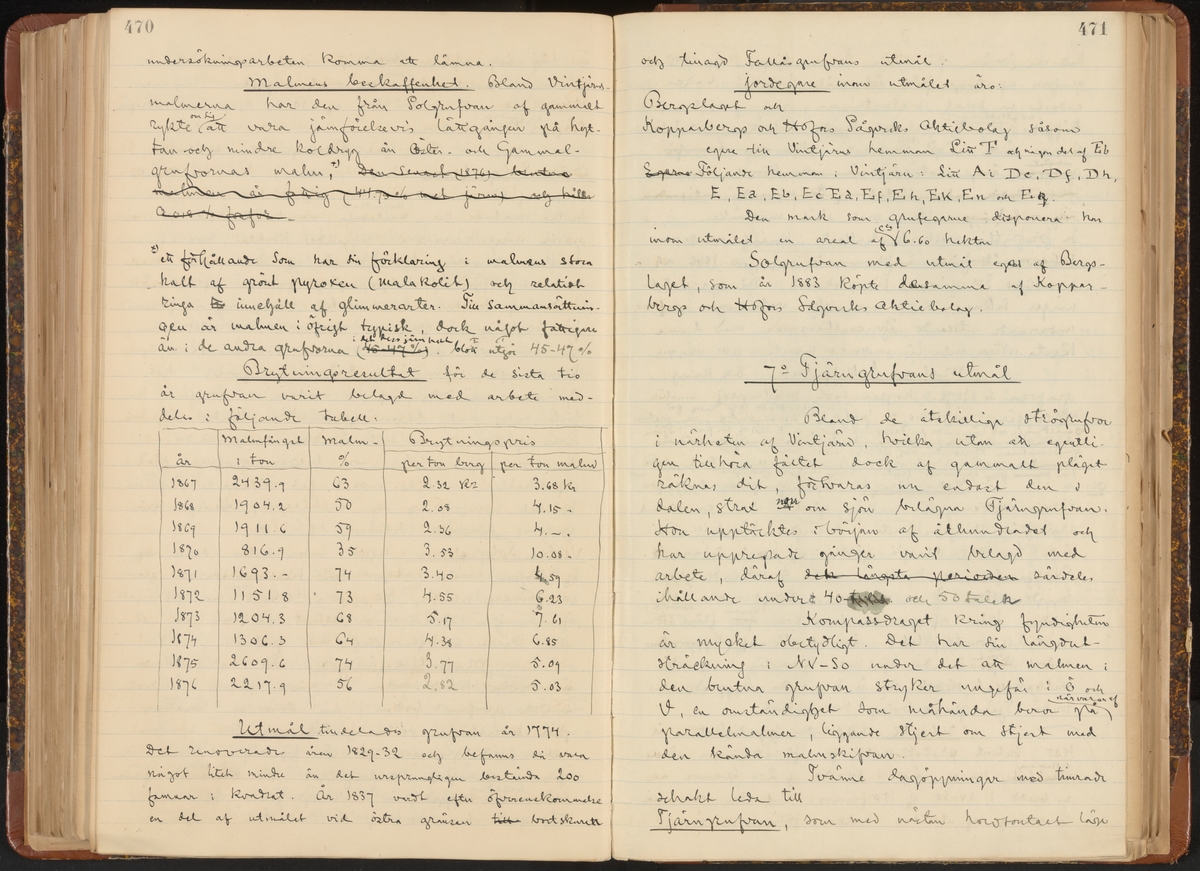 470
undersökningsarbeten komma att lämna.
Malmens beskaffenhet. Bland Vintjärns-
malmerna har den från Solgrufvan af gammalt
rykte om sig att vara jämförelsevis lättgången på hyt-
tan och mindre koldryg än Öster- och Gammal-
grufvornas malm, x) Den senast (1876) brutna
malmen är fattig (44.% met. järn) och håller
0.018 % fosfor.
x) ett förhållande som har din förklaring i malmens stora
halt af grönt pyroxen (malakolit) och relatist
ringa innehåll af glimmerarter. Till sammansättnin-
gen är malmen i öfrigt typisk, dock något fattigare
än i de andra grufvorna (45-47%). i det dess järnhalt blott utgör 45-47%
Brytningsresultat för de sista tio
år grufvan varit belagd med arbete med-
delas i följande tabell:
år Malmfånget i ton Malm-% Brytningspris
per ton berg per ton malm
1867 2439.9 63 2.32 Kr 3.68 Kr
1868 1904.2 50 2.08 4.15 -
1869 1911.6 59 2.36 4. -.
1870 816.9 35 3.53 10.08 -
1871 1693.- 74 3.40 4.59
1872 1151 8 73 4.55 6.23
1873 1204.3 68 5.17 7.61
1874 1306.3 64 4.38 6.85
1875 2609.6 74 3.77 5.09
1876 2217.9 56 2.82 5.03
Utmål tilldelades grufvan år 1774.
Det renoverades åren 1829-32 och befanns då vara
något litet mindre än det ursprungligen bestånda 200
famnar i kvadrat. År 1837 vardt efter öfverenskommelse
en del af utmålet vid östra gränsen till bortskuret
471
och tillagd Fallåsgrufvans utmål.
Jordegare inom utmålet äro:
Bergslaget och
Kopparbergs och Hofors Sågverks Aktiebolag såsom
egare till Vintjärns hemman Litt F och någon del af Eb
Egarne Följande hemman i Vintjärn: Litt Ai Dc, Df, Dh,
E, Ea, Eb, Ec Ed, Ef, Eh, Ek, En och Eq.
Den mark som grufegarne disponera har
inom utmålet en areal af ca 6.60 hektar
Solgrufvan med utmål eges af Bergs-
laget, som år 1883 köpte densamma af Koppar-
bergs och Hofors Sågverks Aktiebolag.
7:o Tjärngrufvans utmål
Bland de åtskilliga strögrufvor
i närheten af Vintjärn, hvilka utan att egentli-
gen tillhöra fältet dock af gammalt pläget
räknas dit, försvaras nu endast den i
dalen, strax nv om sjön belägna Tjärngrufvan.
Hon upptäcktes i början af århundradet och
har upprepade gånger varit belagd med
arbete, däraf den längsta perioden särdeles
ihållande under 40- och 50 talet
Kompassdraget kring fyndigheten
är mycket obetydligt. Det har din längdut-
sträckning i NV-SO under det att malmen i
den brutna grufvan stryker ungefär i Ö och
V, en omständighet som måhända beror på närvaron af
parallelmalmer, liggande stjert om stjert med
den kända malmskifvan.
Tvänne dagöppningar med timrade
schakt leda till
Tjärngrufvan, som med nästan horisontalt läge